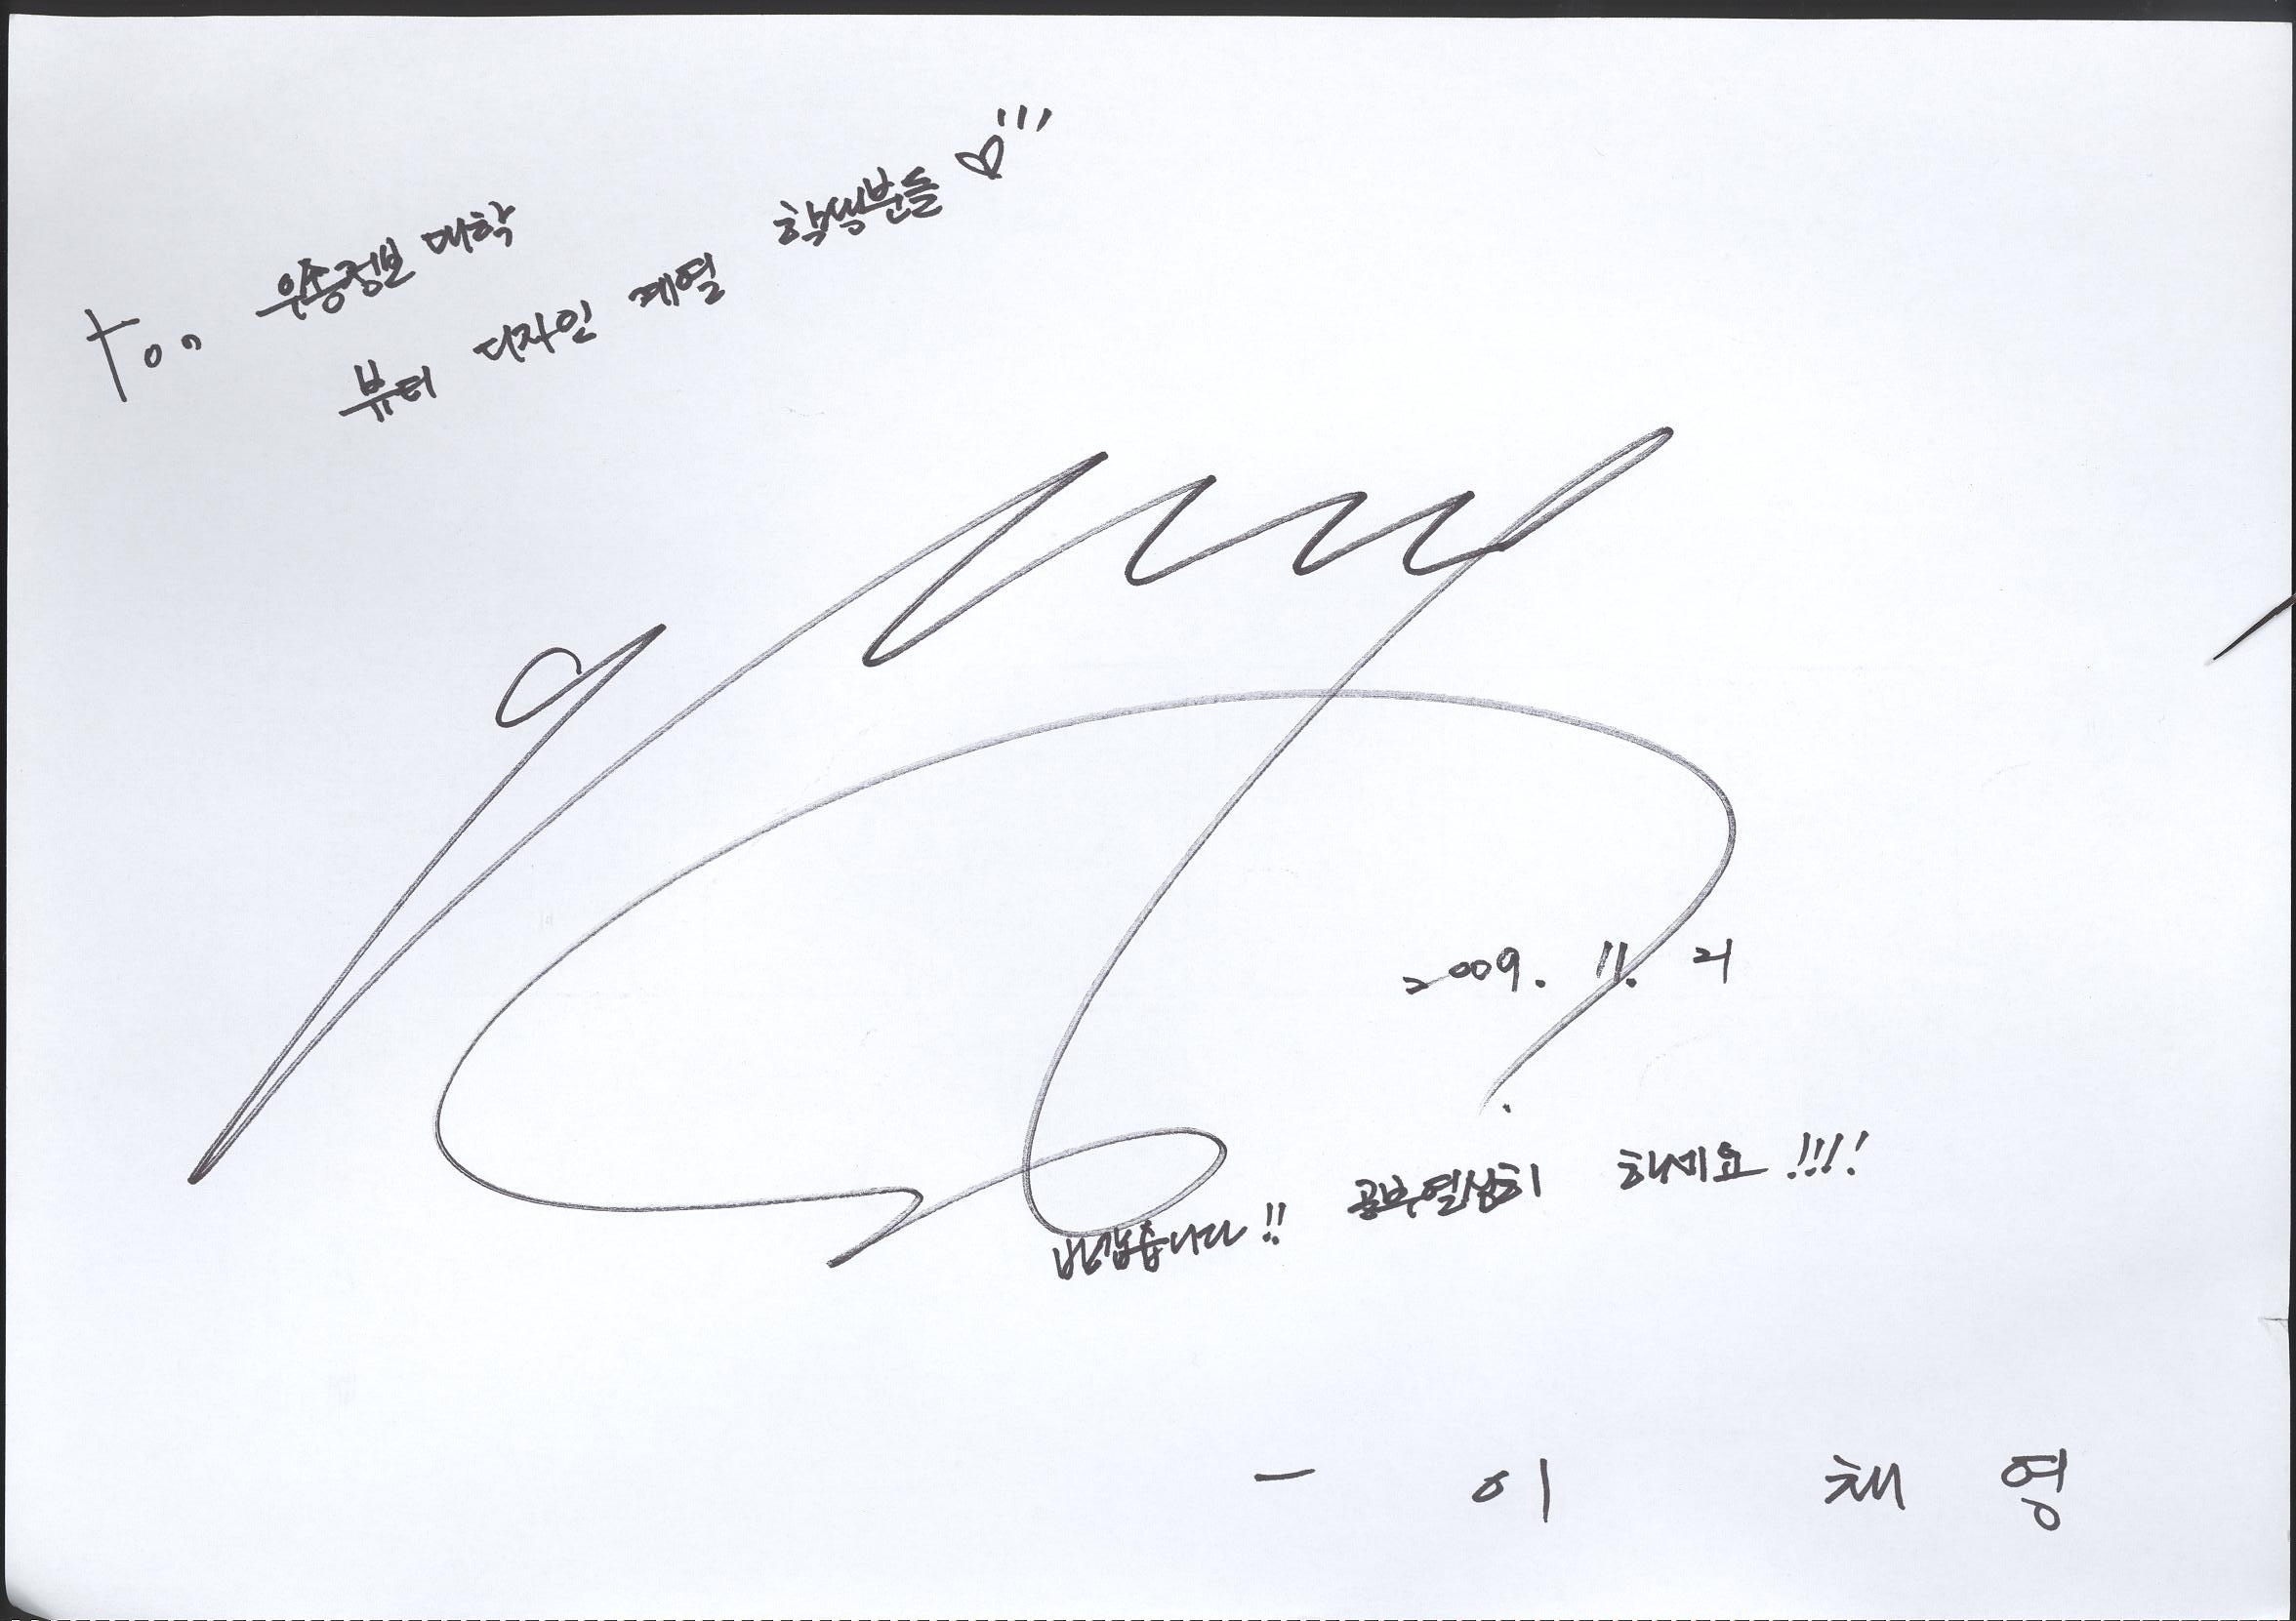 to. 우송정보 대학
뷰티 디자인 계열 학생분들♡
2009. 11. 21
반갑습니다!! 공부열심히 하세요!!!!
- 이 채 영